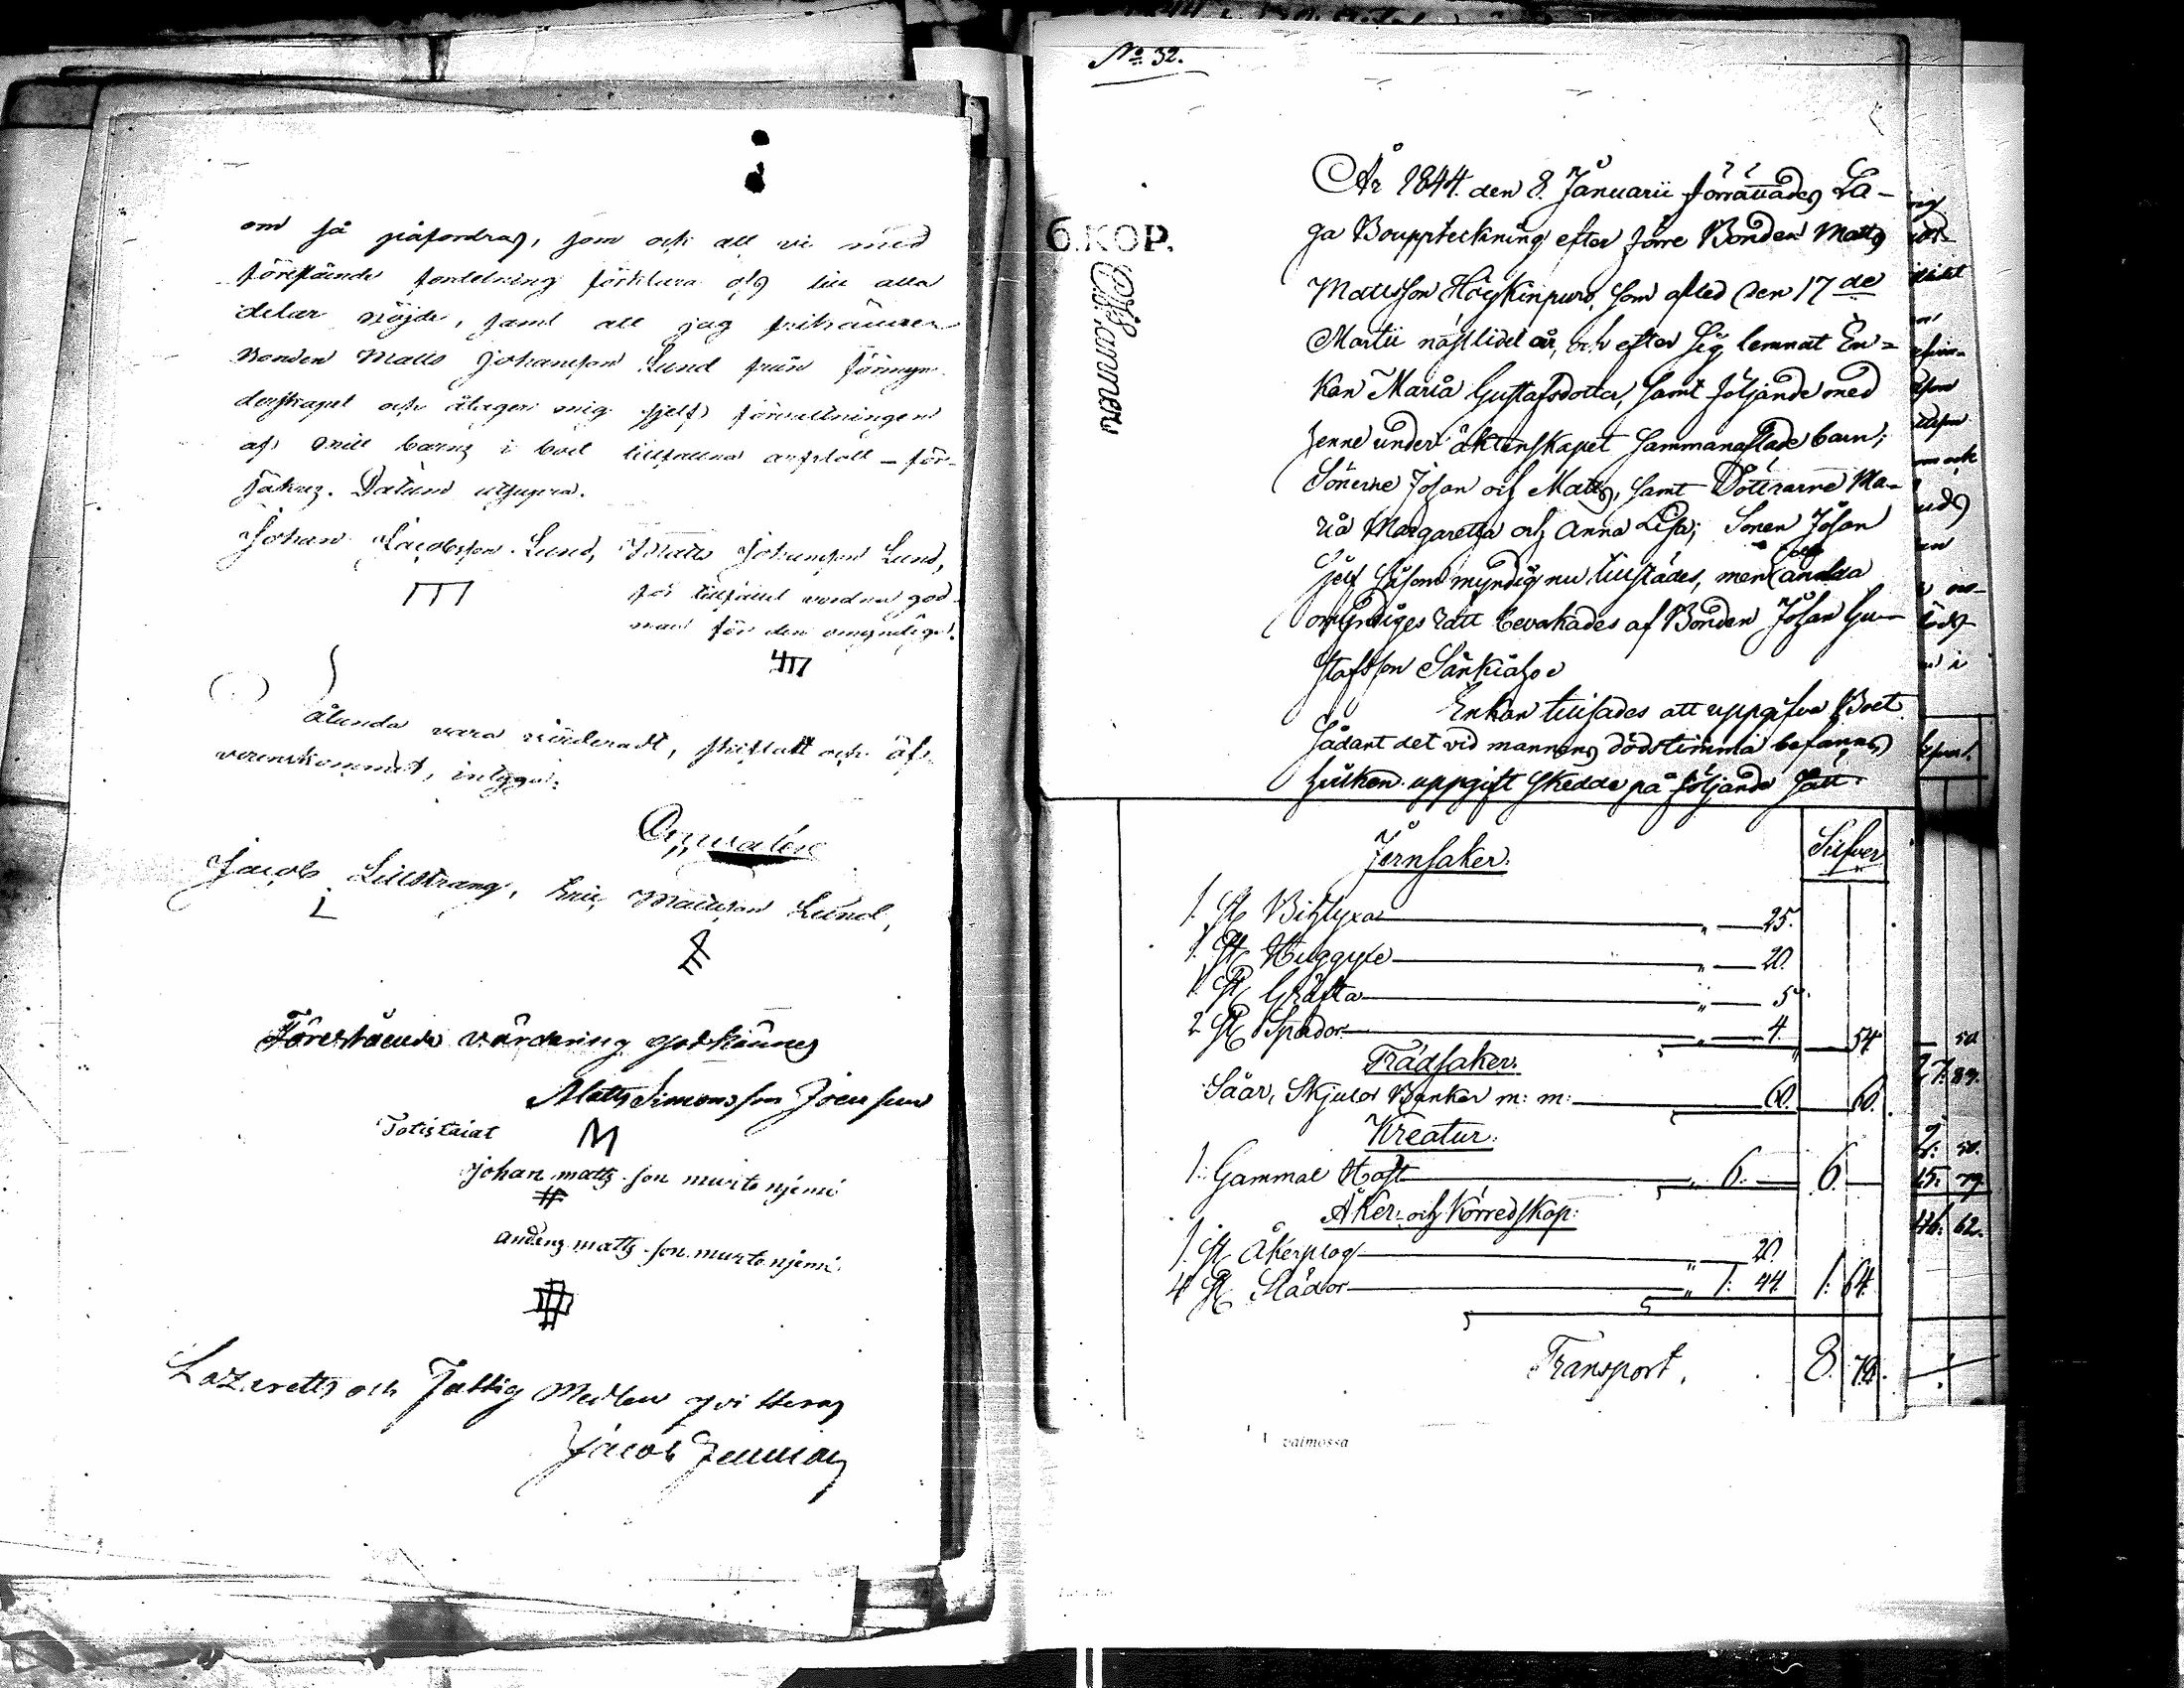 om så påfordras, som och att vi med
förestående fördelning förklara oss till alla
delar nöjde, samt att jag frikänner
Bonden Matts Johansson Lund från förmyn-
derskapet och åtager mig sjelf förvaltningen
af mitt barns i boet tillfallna arfslott – för-
säkras. Datum utsupra.
Johan Jacobsson Lund, Matts Johansson Lund,
för tillfället vordna god-
man för den omyndige.
Sålunda vara värderadt, skiftatt och öf-
verenskommit, intyga:
Jacob Lillstrang, Eric Mattsson Lund,
Förestående värdering godkännes
Matts Simonsson
Totistaiat
johan matts son murto njemi
anders matts son murto njemi
Lazaretts och Fattig Medlen qvitteras
Jacob
No 32.
6.KOP.
År 1844. den 8. Januarii förrättades La-
ga Bouppteckning efter förre Bonden Matts
Mattsson Höykinpuro, som afled den 17de
Martii nästlidet år, och efter sig lemnat En-
kan Maria Gustafsdotter, samt följande med
henne under äktenskapet sammanaflade barn;
Sönerne Johan och Matts, samt Döttrarne Ma-
ria Margaretha och Anna Lisa; Sonen Johan
sjelf såsom myndig nu tillstädes, men de andra
omyndiges rätt bevakades af Bonden Johan Gu-
stafsson Särkiaho
Enkan tillsades att uppgifva Boet
sådant det vid mannens dödstimma befanns
hvilken uppgift skedde på följande sätt.
Jernsaker. Silfver
1. st. Bihlyxa " 25.
1. st. Huggyxe " 20.
1. st. Gräfta " 5.
2 st. Spador " 4. " 54
Trädsaker.
Såar, Skjulor Bunkar m: m: 60. 60.
Kreatur.
1: Gammal Häst " 6. 6.
Åker- och Körredskap:
1. st. Åkerplog " 20.
4 st. Slädor " 1: 44. 1: 64.
Transport. 8. 78.
50
27. 89.
2. 50.
15. 79
46. 62.
vaimossa